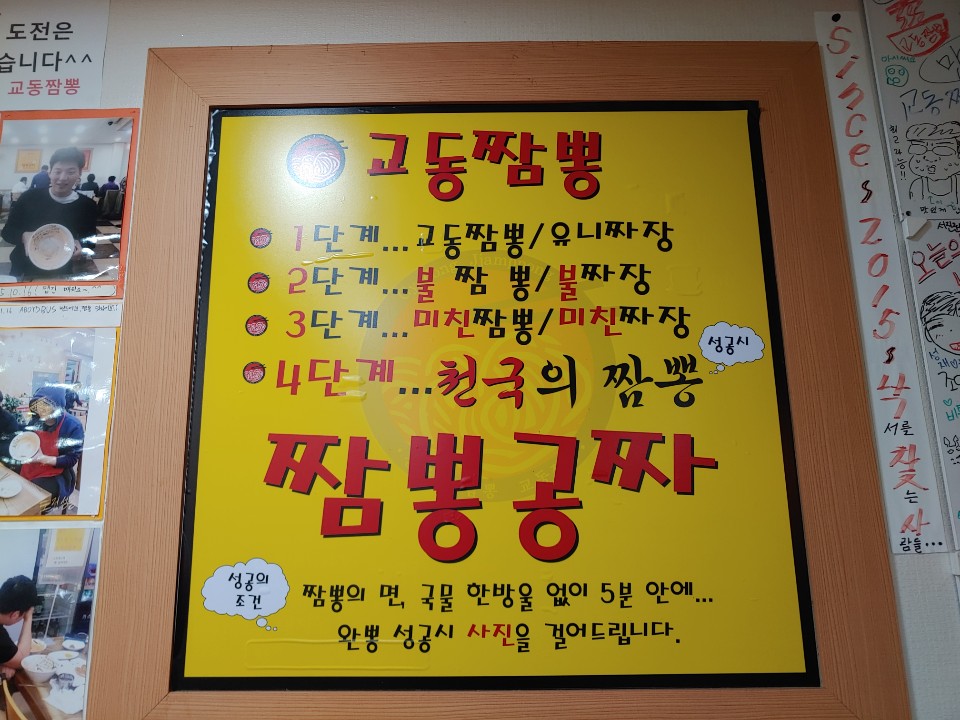 도전은
습니다^^
교동짬뽕
교동짬뽕
1단계...교동짬뽕/유니짜장
2단계...불짬뽕/불짜장
3단계...미친짬뽕/미친짜장
4단계...천국의 짬뽕
성공시
짬뽕공짜
성공의
조건
짬뽕의 면, 국물 한방울 없이 5분 안에...
완뽕 성공시 사진을 걸어드립니다.
Since 2015 낙서를 찾는 사람들...
오늘의